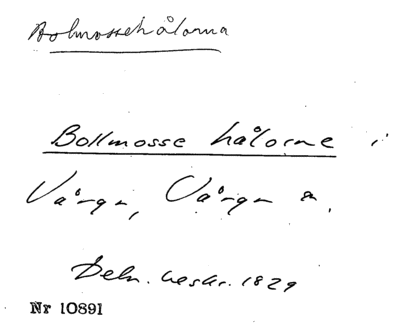 Bolmossehålorna
Bollmosse hålorne i
Vårgn, Vårgn sn.
Beln. beskr. 1829
Nr 10891